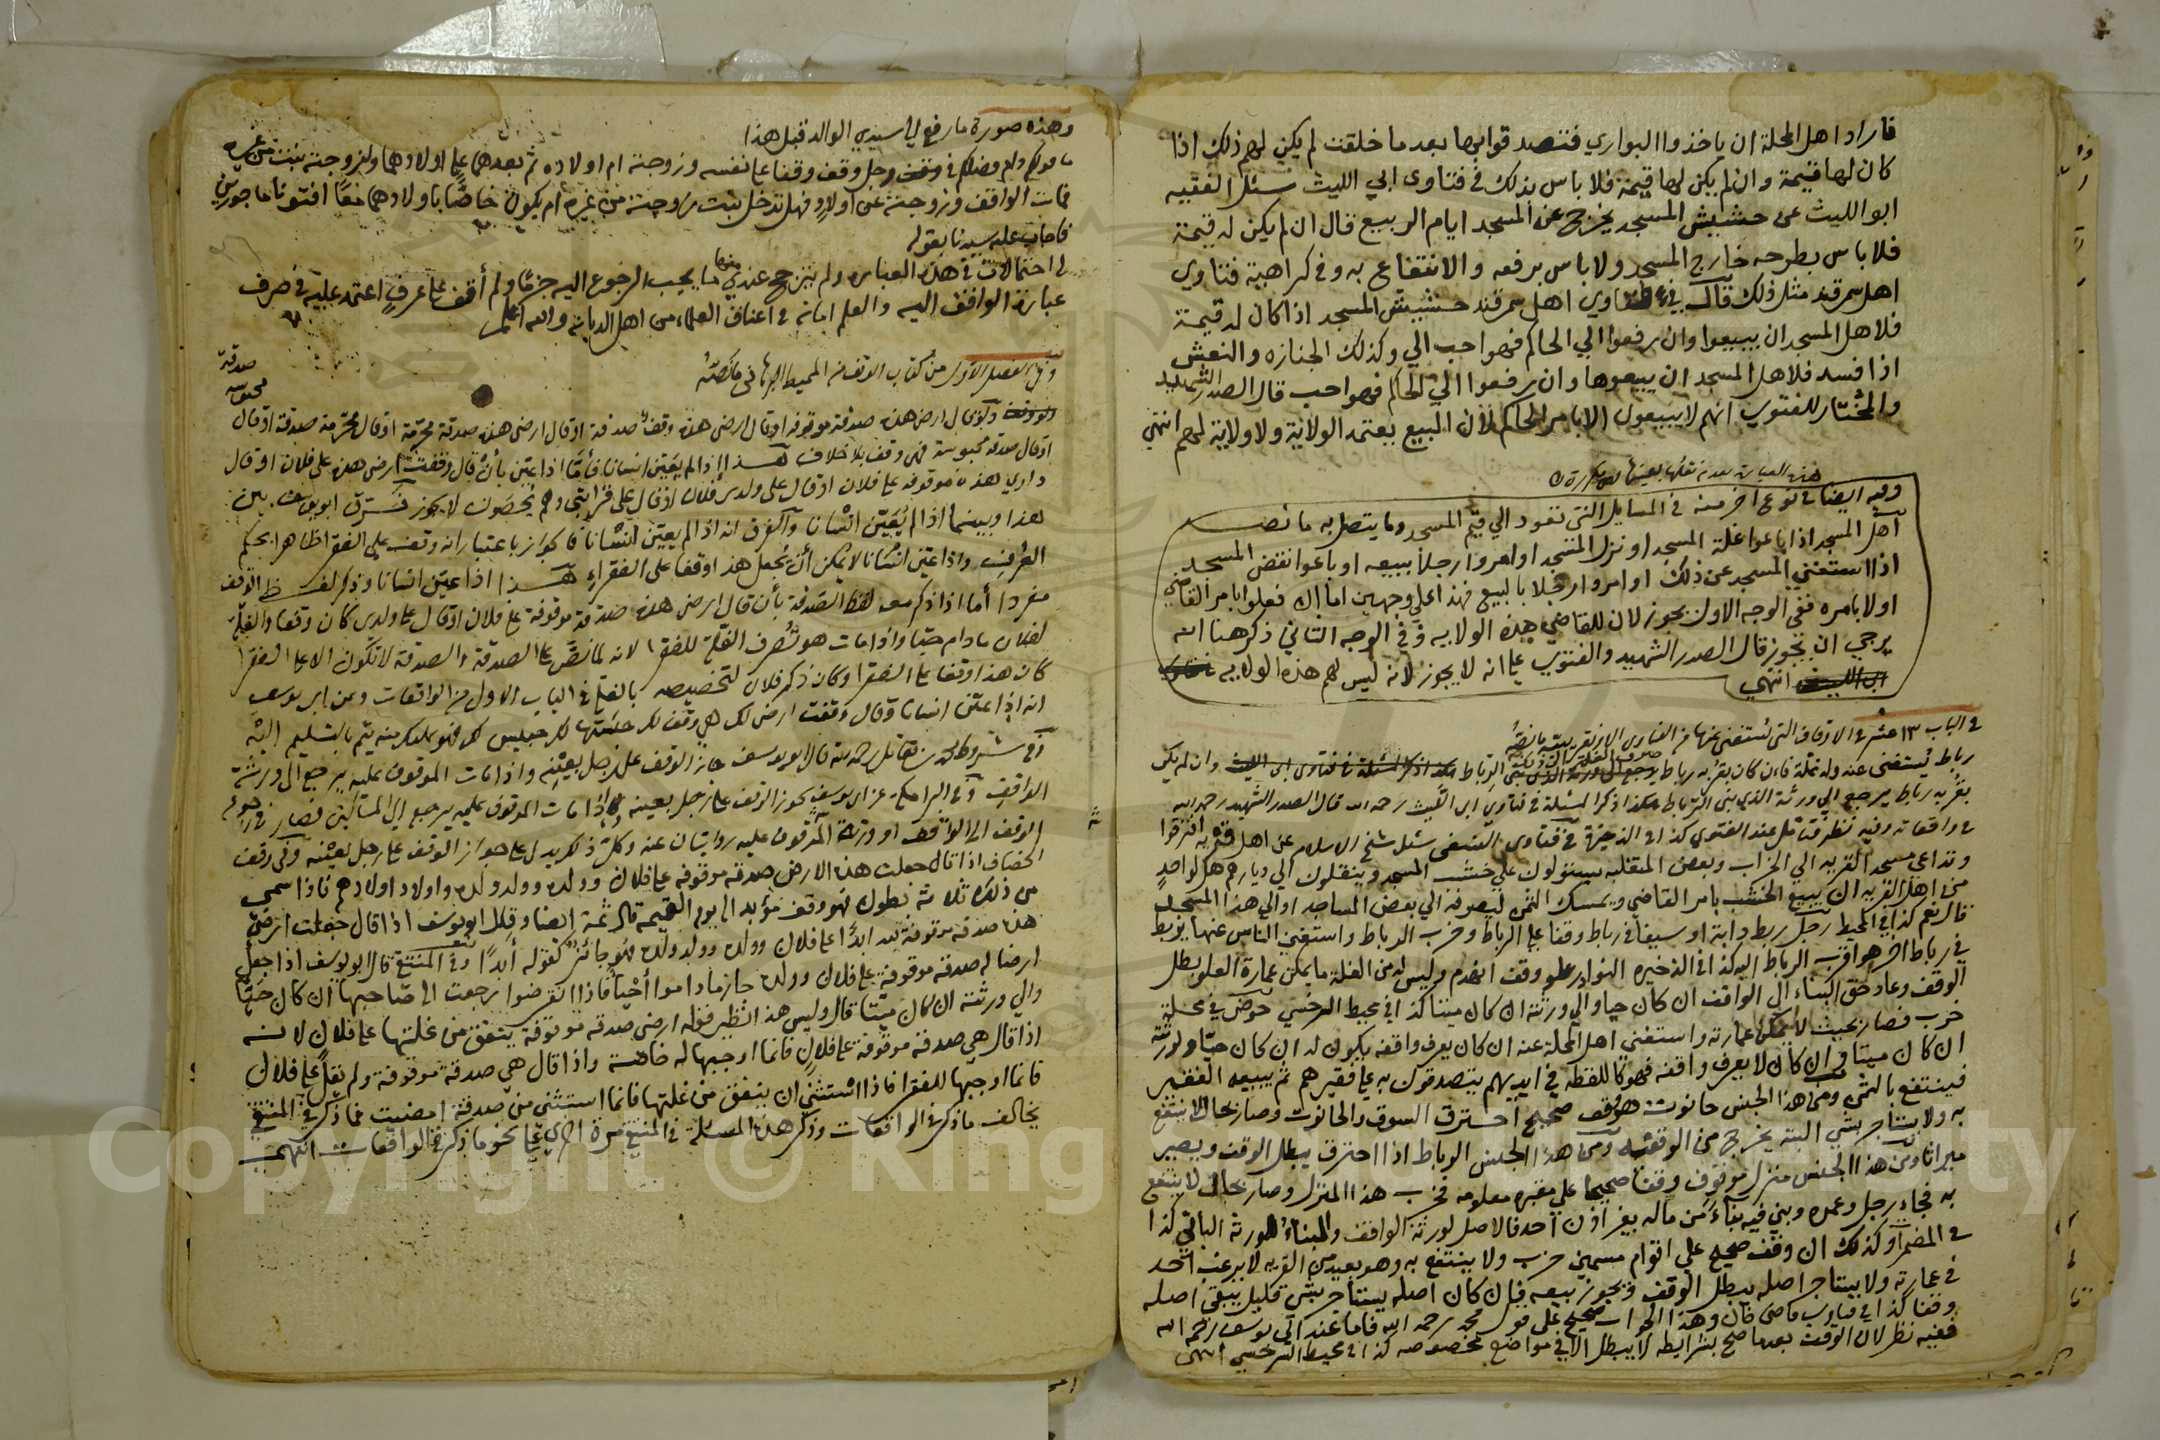 فاراد اهل المحلة ان ياخذوا البواري فتصدقوا بها بعد ما خلقت لم يكن لهم ذلك اذا
كان لها قيمة وان لم يكن لها قيمة فلا باس بذلك في فتاوى ابي الليث سئل الفقيه
ابو الليث عن حشيش المسجد يخرج عن المسجد ايام الربيع قال ان لم يكن له قيمة
فلا باس بطرحه خارج المسجد ولا باس برفعه والانتفاع به وفي كراهية فتاوي
اهل سمرقند مثل ذلك قال في فتاوي اهل سمرقند حشيش المسجد اذا كان له قيمة
فلا هل المسجد ان يبيعوا وان رفعوا الي الحاكم فهو احب الي وكذلك الجنازه والنعش
اذا فسد فلاهل المسجد ان يبيعوها وان رفعوا الي الحاكم فهو احب قال الصدر الشهيد
والمختار للفتوي انهم لا يبيعون الا بامر الحاكم لان البيع يعتمد الولاية ولا ولاية لهم انتهي
هذه العبارة بعد نقلها بعينها
وفيه ايضا في نوع اخر منه في المسايل التي تعود الي قيم المسجد وما يتصل به ما نصه
اهل المسجد اذا باعوا غلة المسجد او نزل المسجد او امروا رجلا ببيعه او باعوا نقض المسجد
اذا استغني المسجد عن ذلك او امروا رجلا بالبيع فهذا علي وجهين اما ان فعلوا بامر القاضي
اولا بامره ففي الوجه الاول يجوز لان للقاضي هذه الولايه وفي الوجه الثاني ذكر هنا انه
يرجي ان يجوز قال الصدر الشهيد والفتوي على انه لا يجوز لانه ليس لهم هذه الولايه
انتهي
في الباب ١٣ عشر في الاوقاف التي يستغنى عنها من الفتاوى
رباط يستغنى عنه وله غلة فان كان بقربه رباط وان لم يكن
بقربه رباط يرجع الي ورثة الذي بنى الرباط هكذا ذكر المسئلة في فتاوي ابي الليث رحمه الله قال الصدر الشهيد رحمه الله
في واقعاته وفيه نظر فتامل عند الفتوي كذا في الذخيرة في فتاوى النسفي سئل شيخ الاسلام عن اهل قريه افترقوا
وتداعى مسجد القريه الي الخراب وبعض المتغلبه يستولون علي خشب المسجد وينقلون الي ديارهم هل لواحد
من اهل القريه ان يبيع الخشب بامر القاضي ويمسك الثمن ليصرفه الي بعض المساجد او الي هذا المسجد
قال نعم كذا في المحيط رجل ربط دابة او سيفا في رباط وقفا على الرباط وخرب الرباط واستغني الناس عنها يربط
في رباط اخر هو اقرب الرباط اليه كذا في الذخيره النوادر علو وقف انهدم وليس له من الغلة ما يمكن عمارة العلو بطل
الوقف وعاد حق البناء الي الواقف ان كان حيا والي ورثته ان كان ميتا كذا في محيط السرخسي حوض في محلة
خرب فصار بحيث لا يمكن عمارته واستغني اهل المحلة عنه ان كان يعرف واقفه يكون له ان كان حيا ولورثته
ان كان ميتا وان كان لا يعرف واقفه فهو كاللقطه في ايديهم يتصدقون به على فقير هم ثم يبيعه الفقير
فينتفع بالثمن ومن هذا الجنس حانوت هو وقف صحيح احترق السوق والحانوت وصار بحال لا ينتفع
به ولا يستاجر بشي البتة يخرج من الوقفيه ومن هذا الجنس الرباط اذا احترق يبطل الوقف ويصير
ميراثا ومن هذا الجنس منزل موقوف وقفا صحيحا علي مقبره معلومه فخرب هذا المنزل وصار بحال لا ينتفع
به فجاء رجل وعمره وبني فيه بناء من ماله بغير اذن احد فالاصل لورثة الواقف والبناء لورثة الباني كذا
في المضمرات وكذلك ان وقف صحيح علي اقوام مسمين خرب ولا ينتفع به وهو بعيد من القريه لا يرغب احد
في عمارته ولا يستاجر اصله يبطل الوقف ويجوز بيعه فان كان اصله يستاجر بشي قليل يبقي اصله
وقفا كذا في فتاوي قاضي خان وهذا الجواب صحيح على قول محمد رحمه الله فاما عند ابي يوسف رحمه الله
ففيه نظر لان الوقف بعد ما صح بشرايطه لا يبطل الا في مواضع مخصوصه كذا في محيط السرخسي انتهى
وهذه صورة ما رفع لي سيدي الوالد قبل هذا
ما قولكم دام فضلكم في رجل وقف وقفا على نفسه وزوجته ام اولاده ثم بعدهما على اولادهما ولزوجته بنت من غيره
فمات الواقف وزوجته عن اولاد فهل تدخل بنت زوجته من غيره ام يكون خاصا باولادهما معا افتونا ماجورين
فاجاب عليه سيدنا بقوله
لي احتمالات في هذه العباره ولم يترجح عندي منها ما يجب الرجوع اليه جزما ولم اقف على عرف اعتمد عليه في صرف
عبارة الواقف اليه والعلم امانة في اعناق العلماء من اهل الديانه والله اعلم
وفي الفصل الاول من كتاب الوقف من المحيط البرهاني ما نصه
صدقة
محبوسه
ولو قال ارضي هذه صدقة موقوفه او قال ارضي هذه وقف صدقة او قال ارضي هذه صدقة محرمة او قال محرمة صدقة او قال
او قال صدقه محبوسة فهي وقف بلا خلاف هذا اذا لم يعين انسانا فاما اذا عين بان قال وقفت ارضي هذه على فلان او قال
داري هذه موقوفه على فلان او قال على ولدي فلان او قال على قرابتي وهم يحصون لا يجوز فرق ابو يوسف بين
هذا وبينما اذا لم يعين انسانا والفرق انه اذا لم يعين انسانا فالجواز باعتبار انه وقف على الفقرا ظاهرا بحكم
العرف واذا عين انسانا لا يمكن ان يجعل هذا وقفا على الفقراء هذا اذا عين انسانا وذكر لفظ الوقف
منفردا اما اذا ذكر معه لفظ الصدقة بان قال ارضي هذه صدقة موقوفة على فلان او قال على ولدي كان وقفا والغلة
لفلان مادام حيا واذا مات هو تصرف الغلة للفقرا لانه لما نص على الصدقة والصدقة لا تكون الا على الفقرا
كان هذا وقفا على الفقرا وكان ذكر فلان لتخصيصه بالغلة في الباب الاول من الواقعات وعن ابي يوسف
انه اذا عين انسانا وقال وقفت ارضي لك هي وقف لك حبستها لك حبيس لك فهو تمليك منه يتم بالتسليم اليه
قال ابو يوسف جاز الوقف على رجل بعينه واذا مات الموقوف عليه يرجع الى ورثة
الواقف وفي البرامكة عن ابي يوسف يجوز الوقف على رجل بعينه واذا مات الموقوف عليه يرجع الي المساكين فصار في رجوع
الوقف الى الواقف او ورثة الموقوف عليه روايتان عنه وكل ذلك يدل على جواز الوقف على رجل بعينه وفي وقف
الخصاف اذا قال جعلت هذه الارض صدقه موقوفه على فلان وولده وولد ولده واولاد اولادهم فاذا سمى
من ذلك ثلاثة بطون فهو وقف مؤبد الى يوم القيمة قال ثمة ايضا وقال ابو يوسف اذا قال جعلت ارضي
هذه صدقه موقوفة لله ابدا على فلان وولده وولد ولده فهو جائز لقوله ابدا وفي المنتقى قال ابو يوسف اذا جعل
ارضا له صدقه موقوفة على فلان وولده جاز ما داموا احياء فاذا انقرضوا رجعت الى صاحبها ان كان حيا
والي ورثته ان كان ميتا قال وليس هذا نظير قوله ارضي صدقه موقوفة ينفق من غلتها على فلان لانه
اذا قال هي صدقه موقوفة على فلان فانما اوجبها له خاصة واذا قال هي صدقة موقوفة ولم يقل على فلان
فانما اوجبها للفقرا فاذا استثنى ان ينفق من غلتها فانما استثنى من صدقة امضيت فما ذكر في المنتقى
يخالف ما ذكر في الواقعات وذكر هذه المسئلة في المنتقى مرة اخرى على نحو ما ذكر في الواقعات انتهى
Copyright © King University